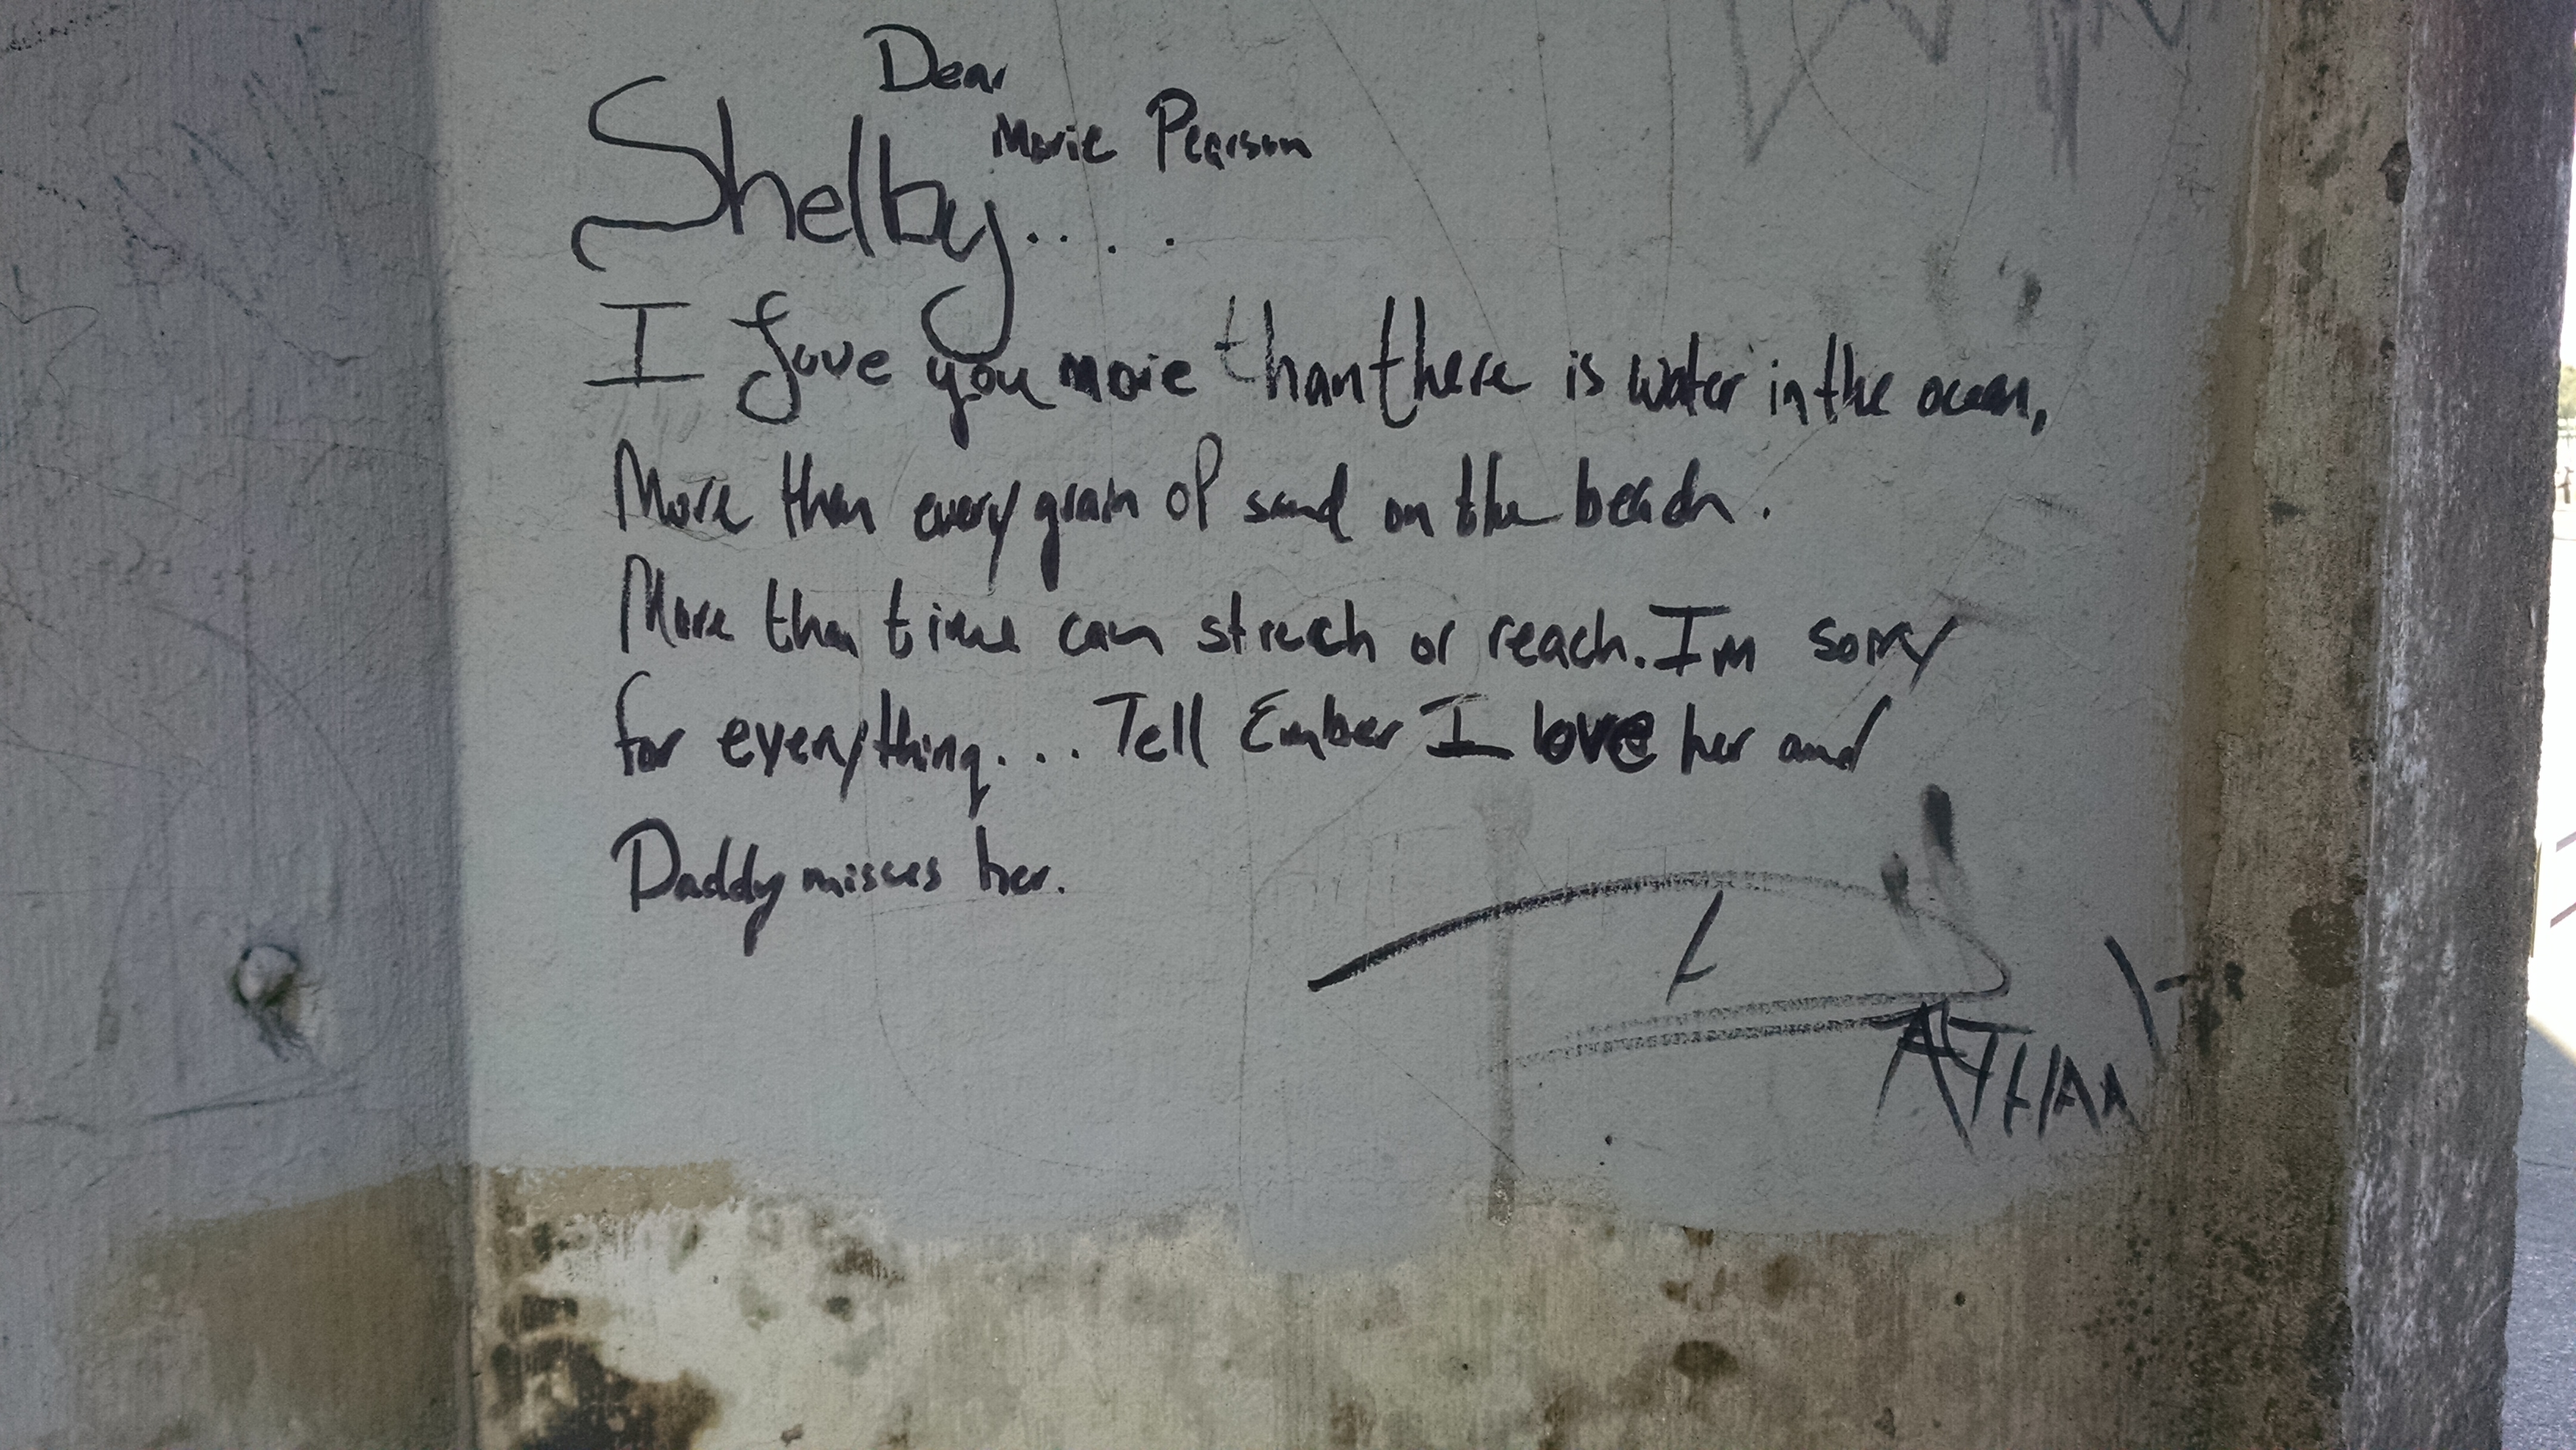 Dear
Shelby Marie Pearson
....
I love you more than there is water in the ocean,
More than every grain of sand on the beach.
More than time can strech or reach. Im sorry
for everything... Tell Ember I love her and
Daddy misses her.